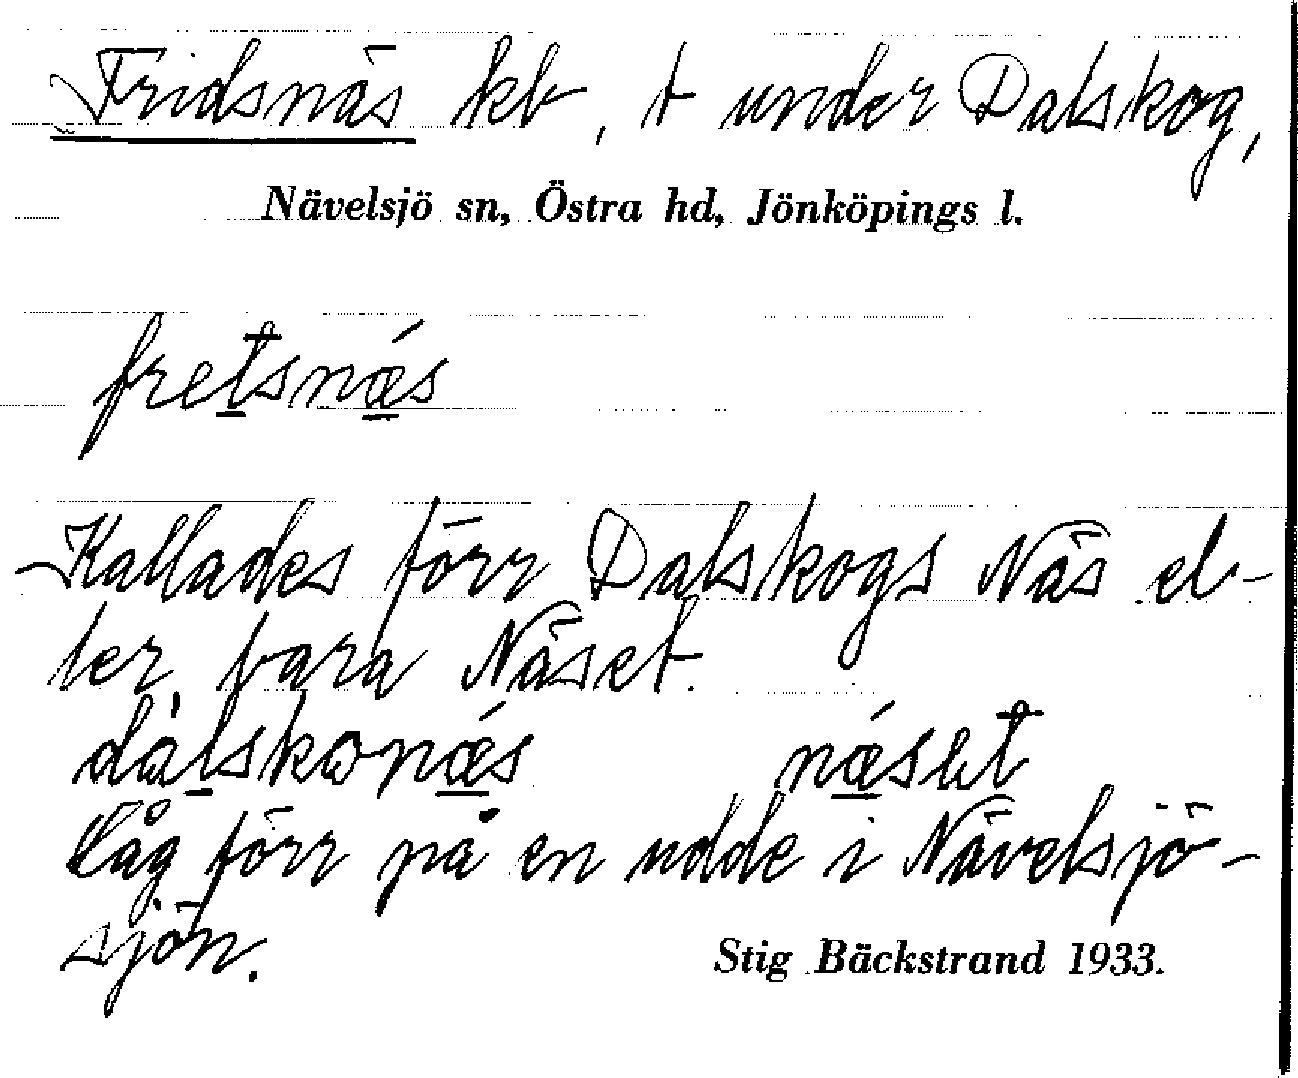 Fridsnäs kb, t under Dalskog,
Nävelsjö sn, Östra hd, Jönköpings l.
fretsnǽs
Kallades förr Dalskogs Näs el-
ler bara Näset.
dàlskonǽs nǽset
Låg förr på en udde i Nävelsjö-
sjön.
Stig Bäckstrand 1933.